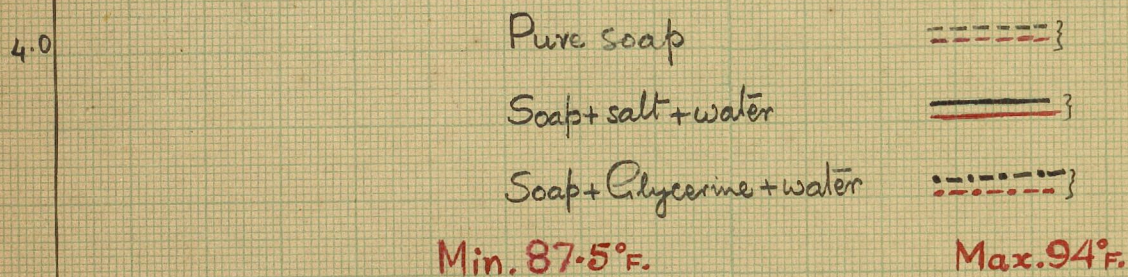 4.0 Pure soap
Soap+ salt + water
Soap+ Glycerine + water
Min. 87.5°F. Max. 94°F.